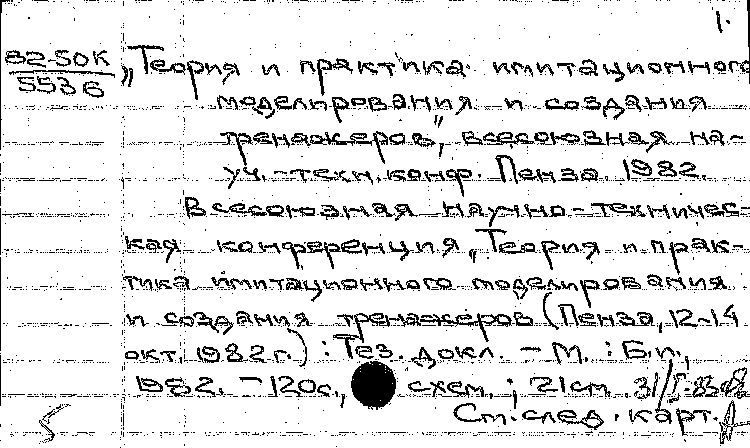 1.
82-50К
5536
„Теория и практика имитационного
моделирования и создания
тренажеров", всесоюзная на-
уч.-техн. конф. Пенза. 1982.
Всесоюзная научно-техничес-
кая конференция „Теория и прак-
тика имитационного моделирования
и создания тренажеров (Пенза, 12-14
окт. 1982 г.) : Тез. докл. - М. : Б.и.,
1982. - 120с., схем. ; 21см.
См. след. карт.